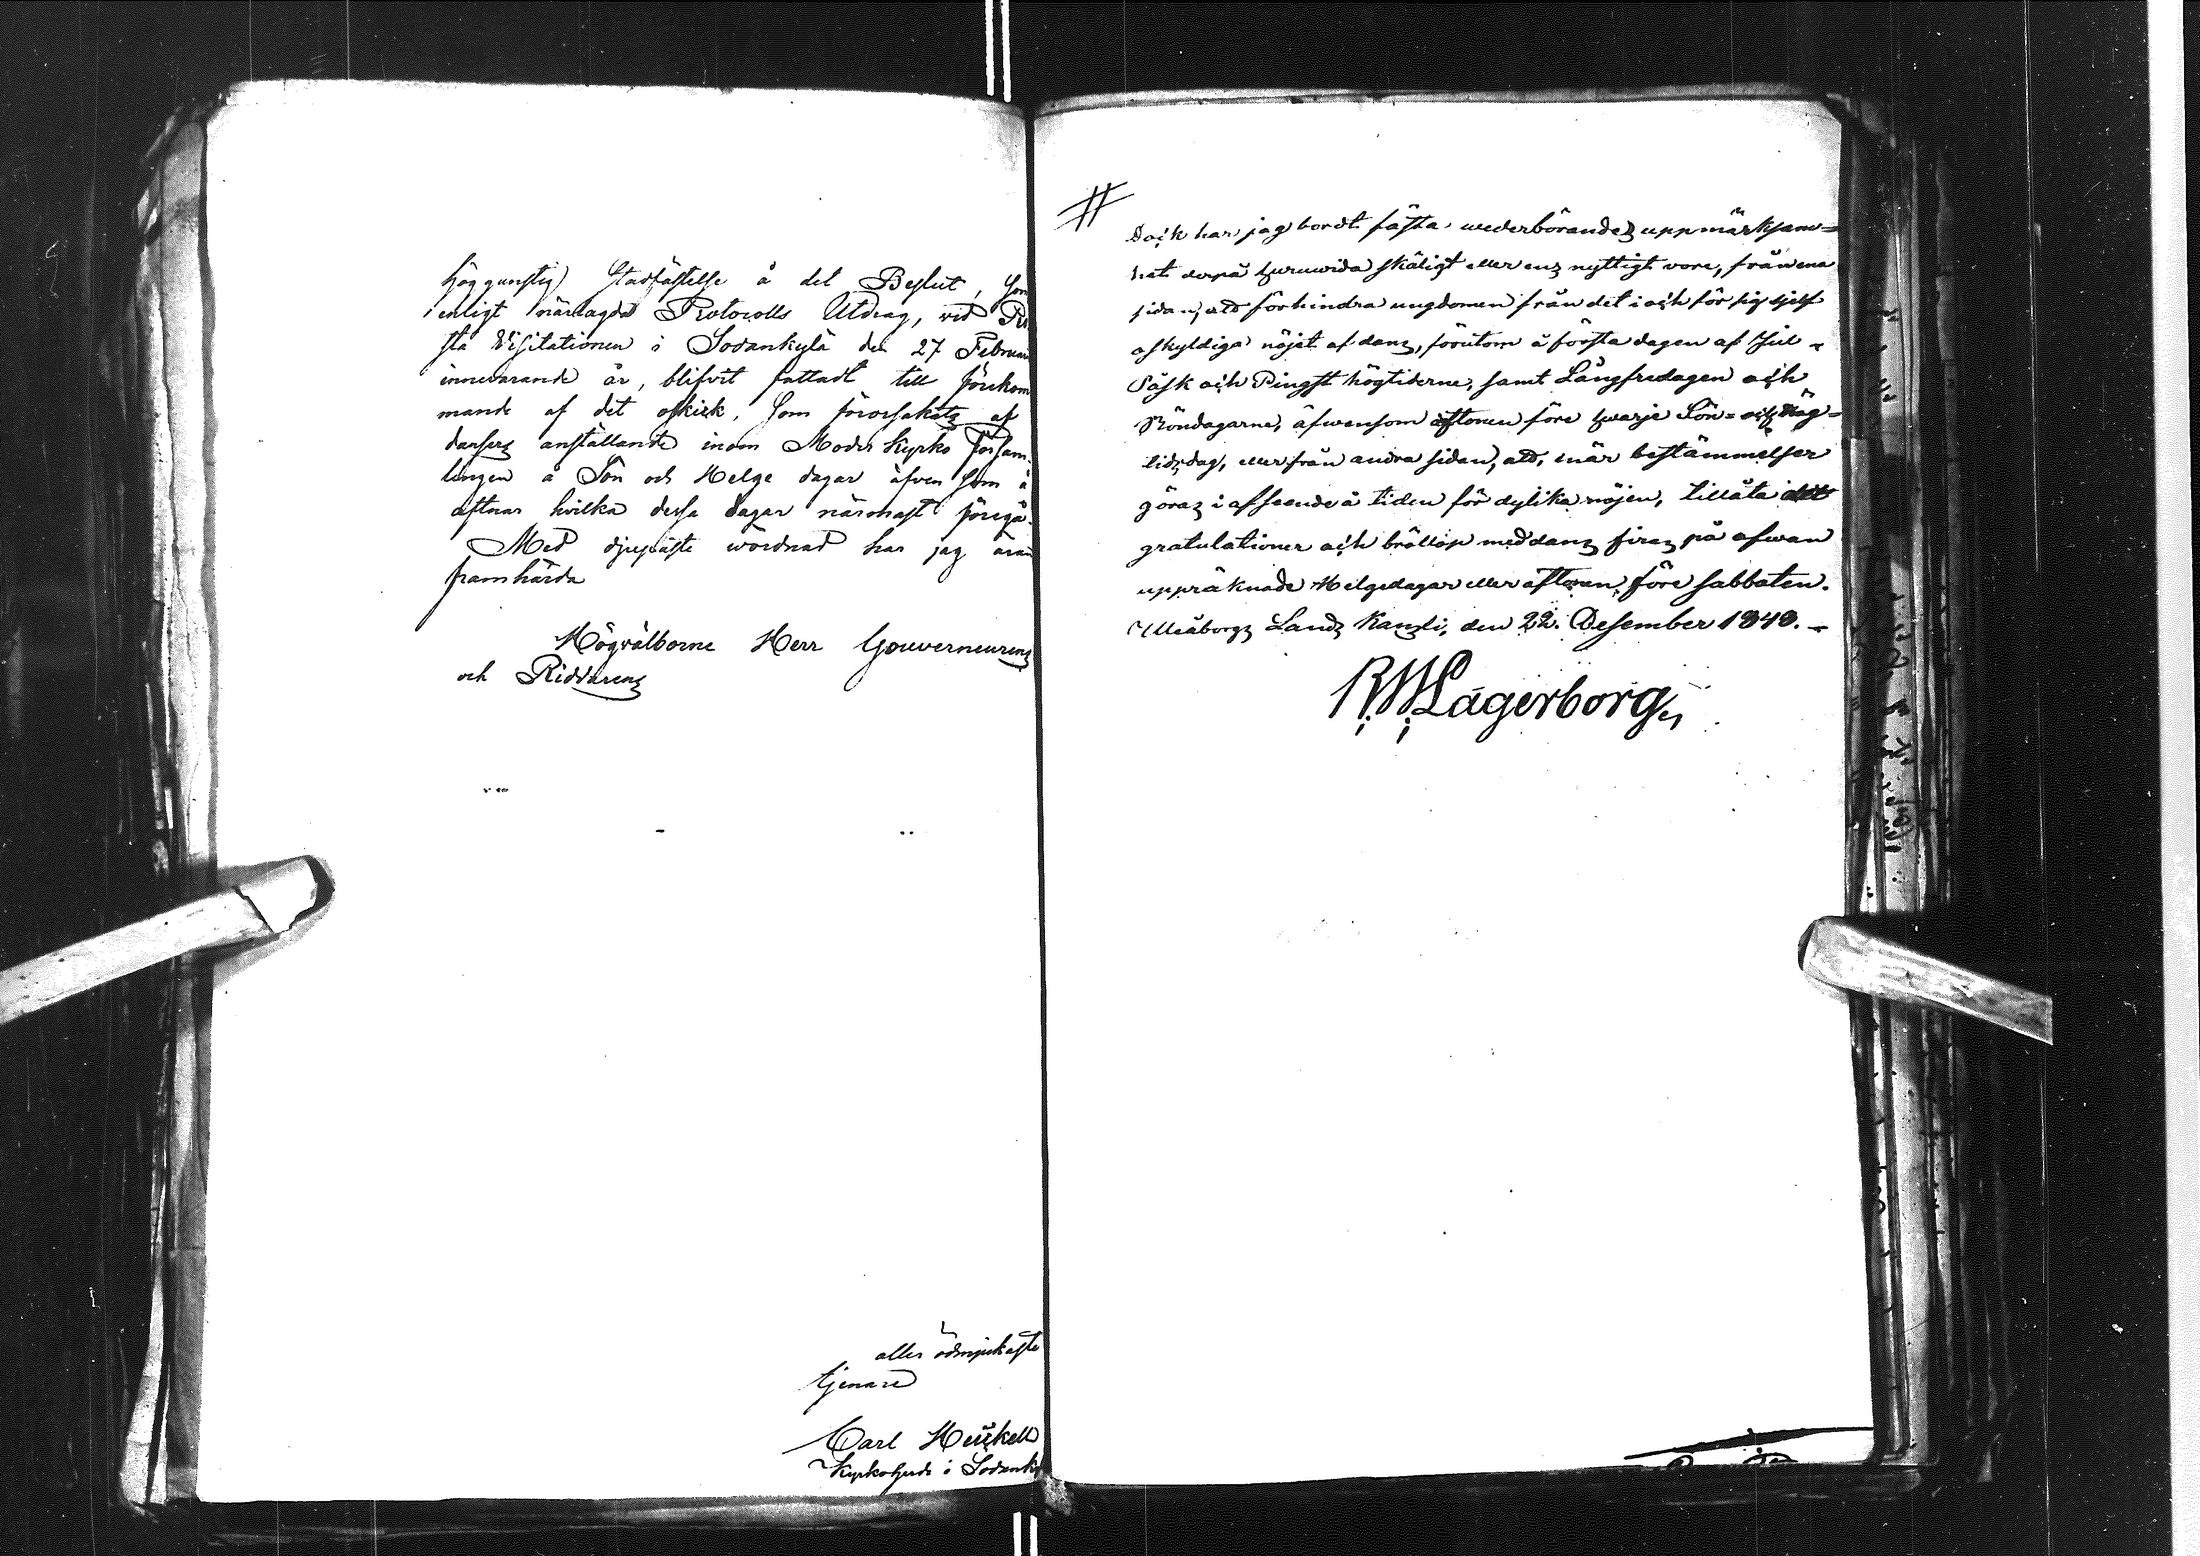 höggunstig Stadfästelse å det Beslut, som
enligt närlagda Protocolls Utdrag, vid
sta Visitationen i Sodankylä den 27 Februari
innevarande år, blifvit fattadt till förekom
mande af det oskick, som förorsakats af
dansers anställande inom Moder Kyrko Försam-
lingen å Sön och Helge dagar äfven som å
aftnar hvilka dessa dagar närmast föregå.
Med djupaste wördnad har jag äran
framhärda
Högvälborne Herr Gouverneurens
och Riddarens
aller ödmjukaste
tjenare
Carl Heickell
Kyrkoherde i Sodanky
#
Dock har jag bordt fästa wederbörandes uppmärksam=
het derpå huruwida skäligt eller ens nyttigt vore, från ena
sidan, att förhindra ungdomen från det i och för sig sjelf
oskyldiga nöjet af dans, förutom å första dagen af Jul-
Påsk och Pingst högtiderne, samt Långfredagen och
Böndagarne, äfwensom aftonen före hwarje Sön= och Hög=
tidsdag, eller från andra sidan, att, när bestämmelser
göras i afseende å tiden för dylika nöjen, tillåta att
gratulationer och bröllop med dans firas på ofwan
uppräknade Helgedagar eller aftonen före sabbaten.
Uleåborgs Lands Kansli, den 22. Desember 1849. -
RWLagerborg